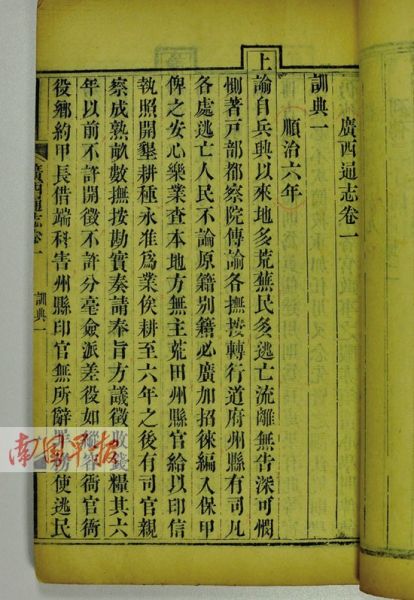 廣西通志卷一
訓典一
順治六年
上諭自兵興以來地多荒蕪民多逃亡流離無告深可憫
惻著戸部都察院傳諭各撫按轉行道府州縣有司凡
各處逃亡人民不論原籍别籍必廣加招徠編入保甲
俾之安心樂業查本地方無主荒田州縣官給以印信
執照開墾耕種永准為業俟耕至六年之後有司官親
察成熟畝數撫按勘實奏請奉旨方議徵收錢糧其六
年以前不許開徵不許分毫僉派差役如縱容衙官衙
役鄉約甲長借端科害州縣印官無所辭罪務使逃民
廣西通志卷一
訓典一
南国早报